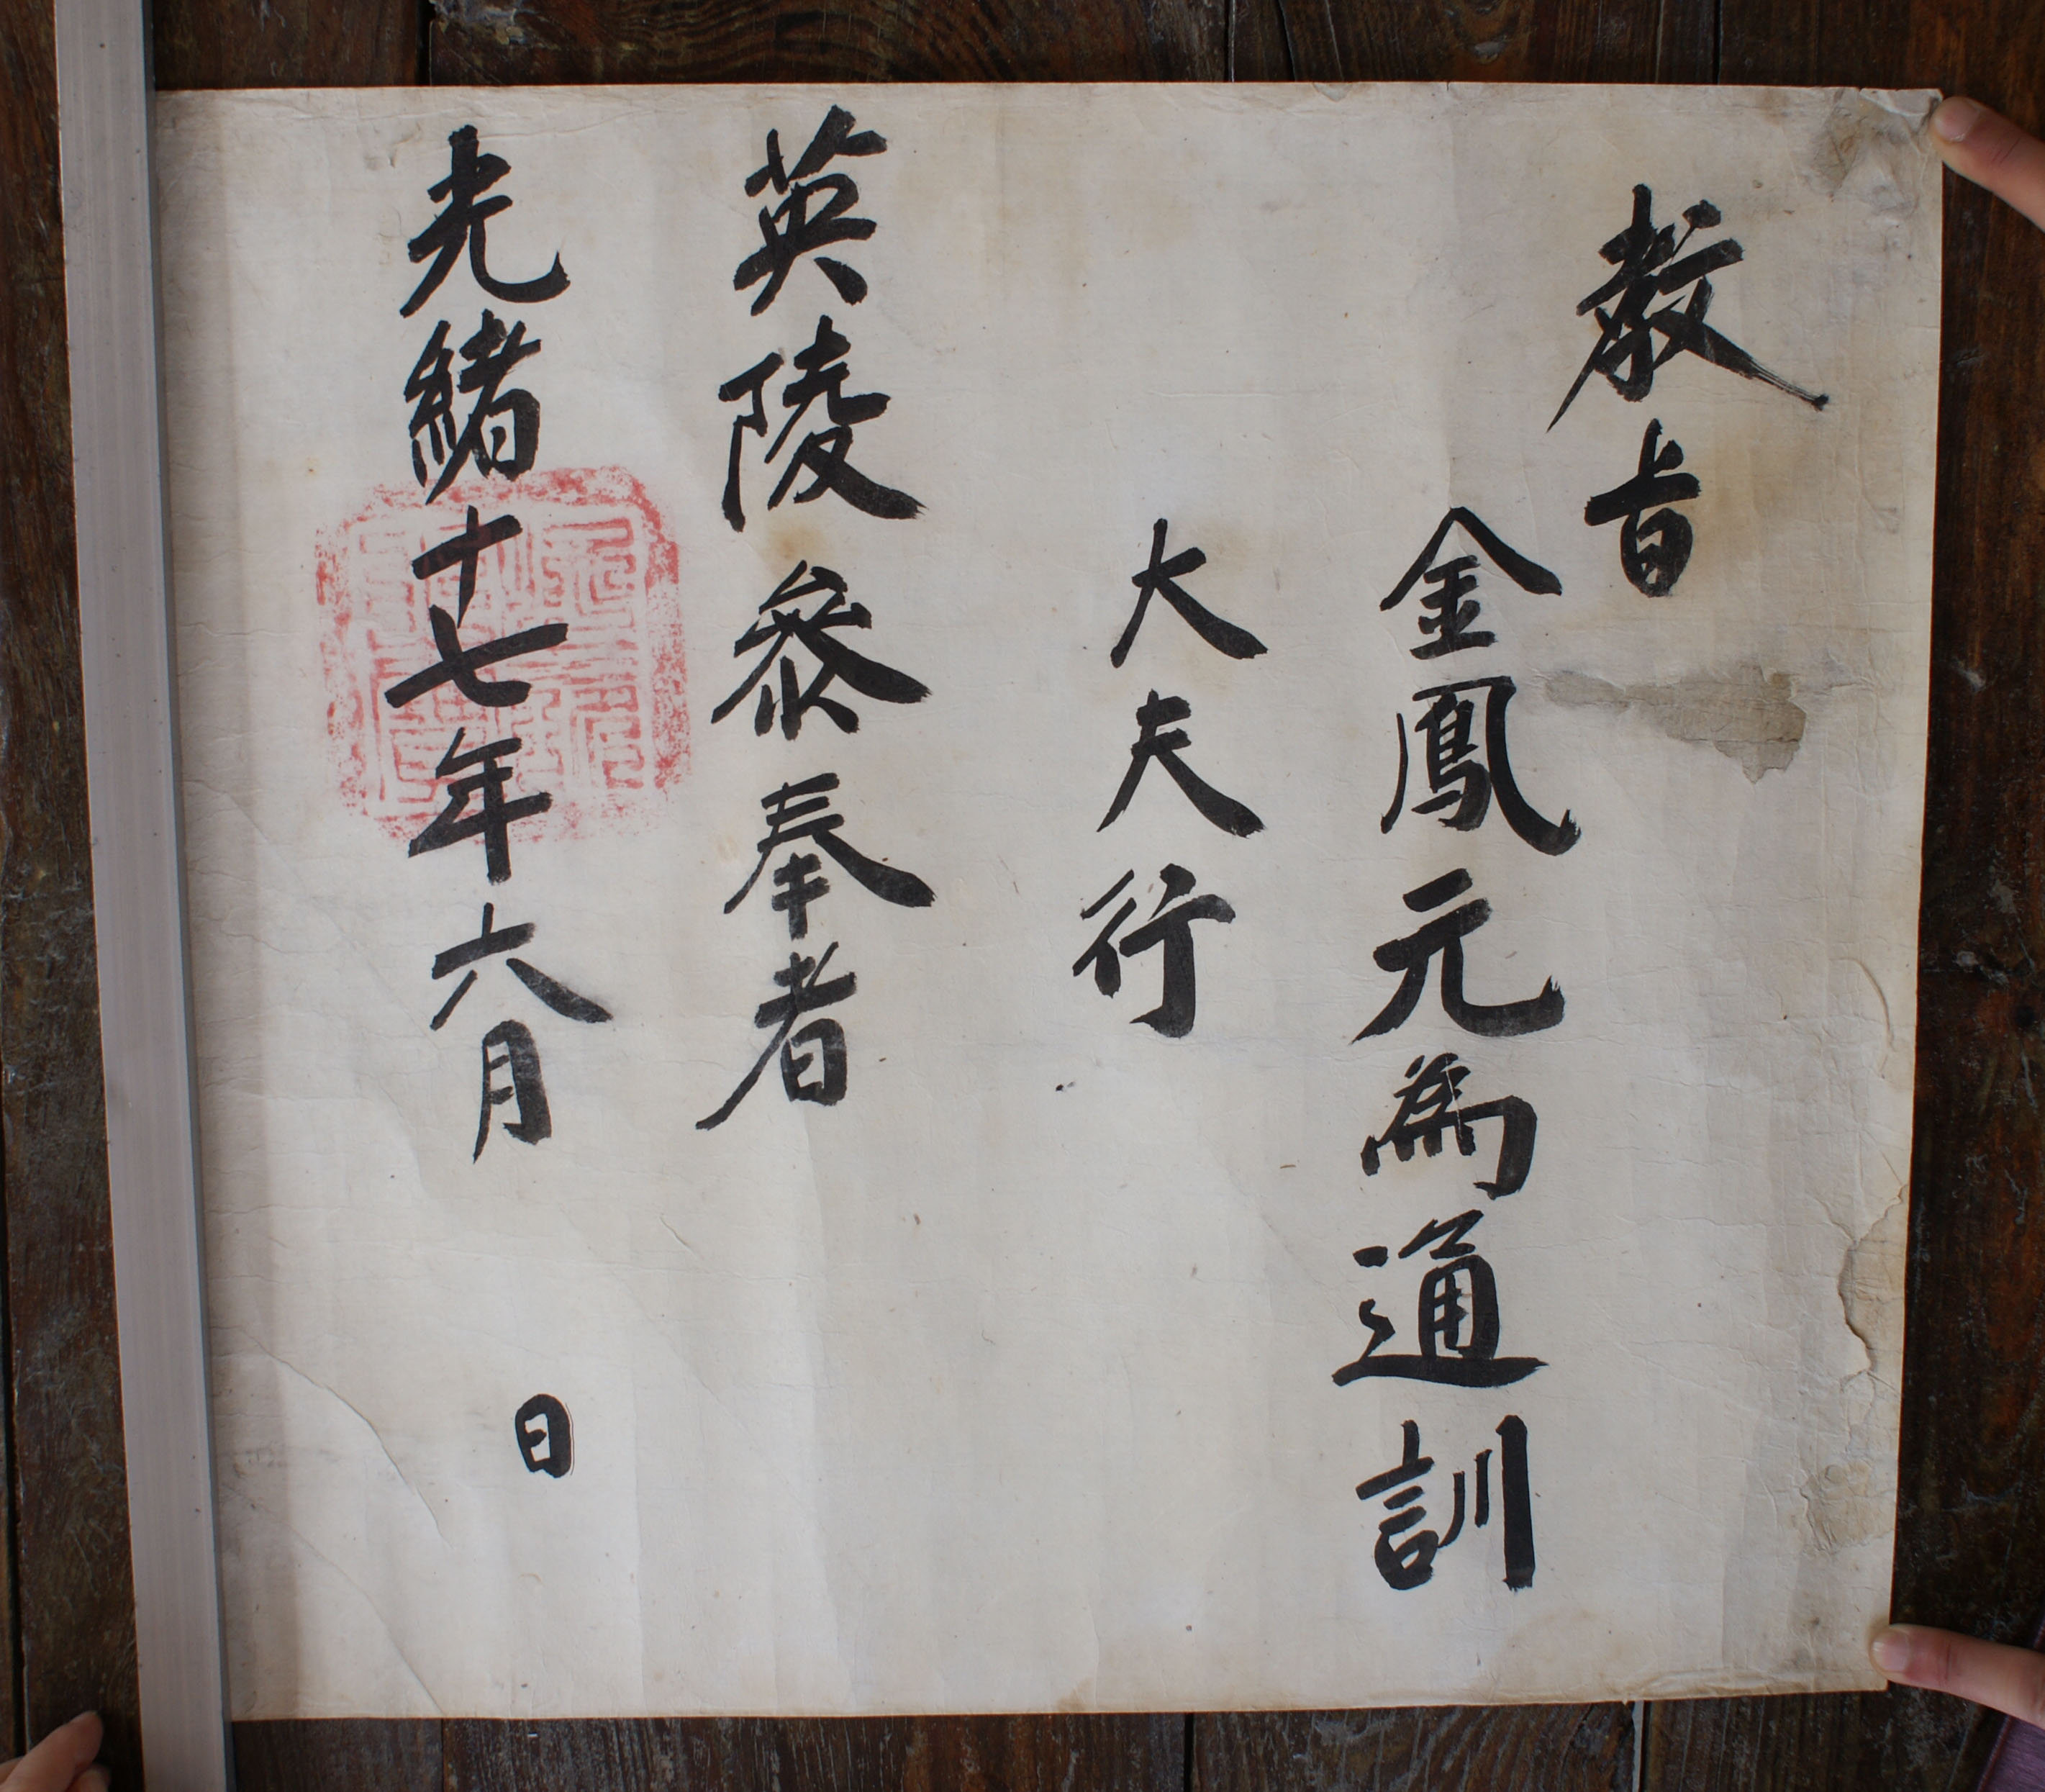 教旨
金鳳元為通訓
大夫行
英陵參奉者
光緒十七年六月 日